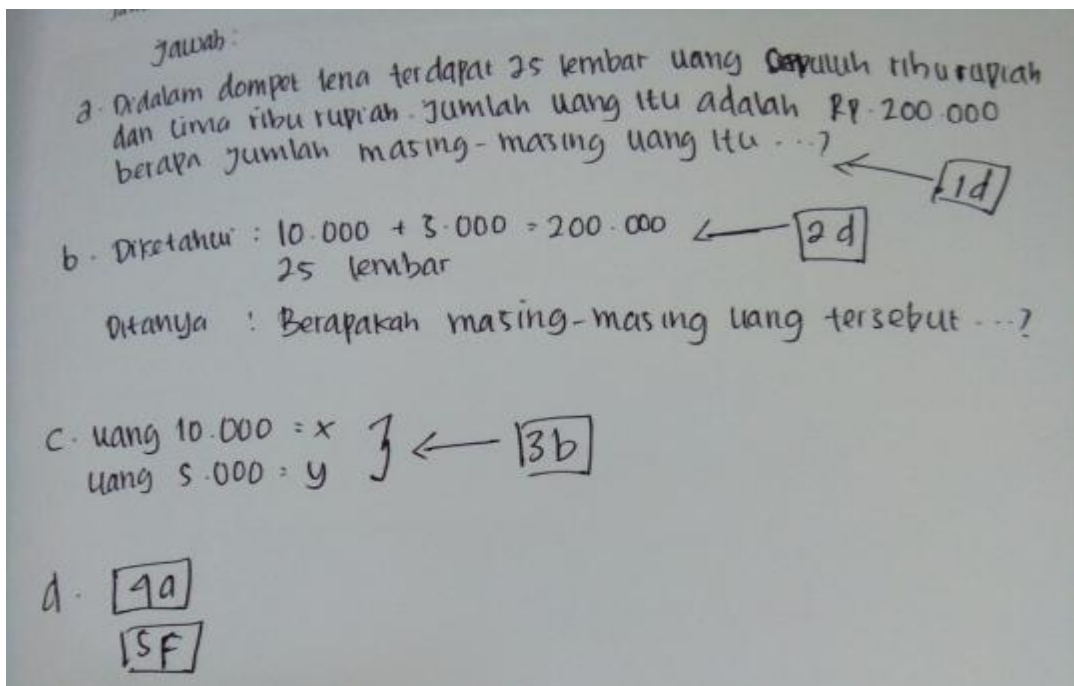 Jawab:
a. Didalam dompet lena terdapat 25 lembar uang sepuluh ribu rupiah
dan lima ribu rupiah. Jumlah uang itu adalah Rp. 200.000
berapa jumlah masing-masing uang itu ...?
1d
b. Diketahui : 10.000 + 5.000 = 200.000
2d
25 lembar
Ditanya : Berapakah masing-masing uang tersebut ...?
c. uang 10.000 = x
uang 5.000 = y
3b
d. 4a
5F